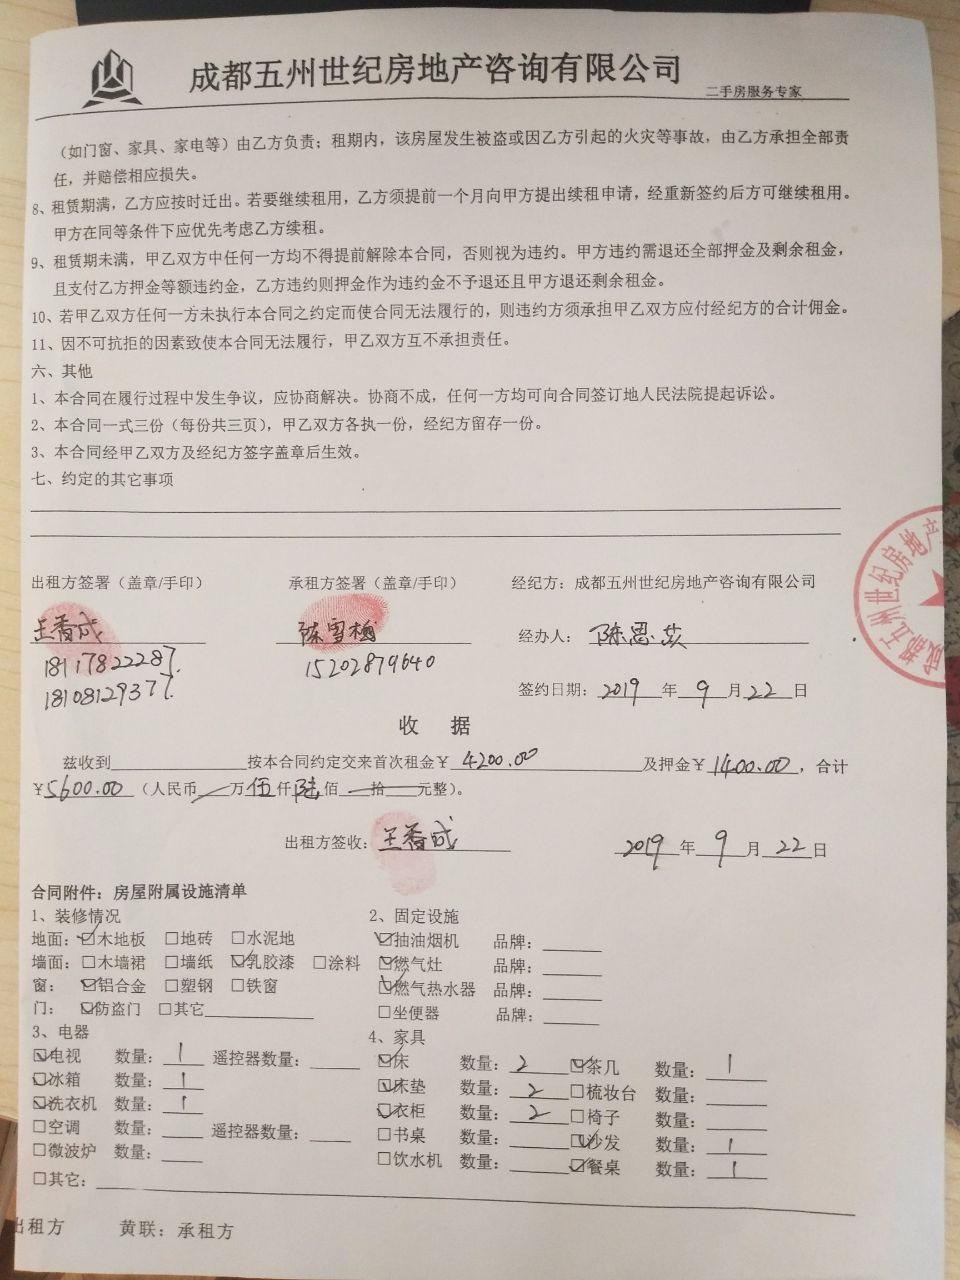 成都五州世纪房地产咨询有限公司
二手房服务专家
（如门窗、家具、家电等）由乙方负责；租期内，该房屋发生被盗或因乙方引起的火灾等事故，由乙方承担全部责
任，并赔偿相应损失。
8、租赁期满，乙方应按时迁出。若要继续租用，乙方须提前一个月向甲方提出续租申请，经重新签约后方可继续租用。
甲方在同等条件下应优先考虑乙方续租。
9、租赁期未满，甲乙双方中任何一方均不得提前解除本合同，否则视为违约。甲方违约需退还全部押金及剩余租金，
且支付乙方押金等额违约金，乙方违约则押金作为违约金不予退还且甲方退还剩余租金。
10、若甲乙双方任何一方未执行本合同之约定而使合同无法履行的，则违约方须承担甲乙双方应付经纪方的合计佣金。
11、因不可抗拒的因素致使本合同无法履行，甲乙双方互不承担责任。
六、其他
1、本合同在履行过程中发生争议，应协商解决。协商不成，任何一方均可向合同签订地人民法院提起诉讼。
2、本合同一式三份（每份共三页），甲乙双方各执一份，经纪方留存一份。
3、本合同经甲乙双方及经纪方签字盖章后生效。
七、约定的其它事项
出租方签署（盖章/手印） 承租方签署（盖章/手印） 经纪方：成都五州世纪房地产咨询有限公司
王香成 陈雪梅 经办人：陈思
18117822287. 15202879640
18108129377. 签约日期：2019年9月22日
成都五州世纪房地产
收 据
兹收到 按本合同约定交来首次租金￥4200.00 及押金￥1400.00，合计
￥5600.00（人民币 万伍仟陆佰 拾 元整）。
出租方签收：王香成 2019年9月22日
合同附件：房屋附属设施清单
1、装修情况 2、固定设施
地面：☑木地板 □地砖 □水泥地 ☑抽油烟机 品牌：
墙面：□木墙裙 □墙纸 ☑乳胶漆 □涂料 ☑燃气灶 品牌：
窗： ☑铝合金 □塑钢 □铁窗 ☑燃气热水器 品牌：
门： ☑防盗门 □其它 □坐便器 品牌：
3、电器 4、家具
☑电视 数量：1 遥控器数量： ☑床 数量：2 ☑茶几 数量：1
☑冰箱 数量：1 ☑床垫 数量：2 □梳妆台 数量：
☑洗衣机 数量：1 ☑衣柜 数量：2 □椅子 数量：
□空调 数量： 遥控器数量： □书桌 数量： ☑沙发 数量：1
□微波炉 数量： □饮水机 数量： ☑餐桌 数量：1
□其它：
出租方 黄联：承租方